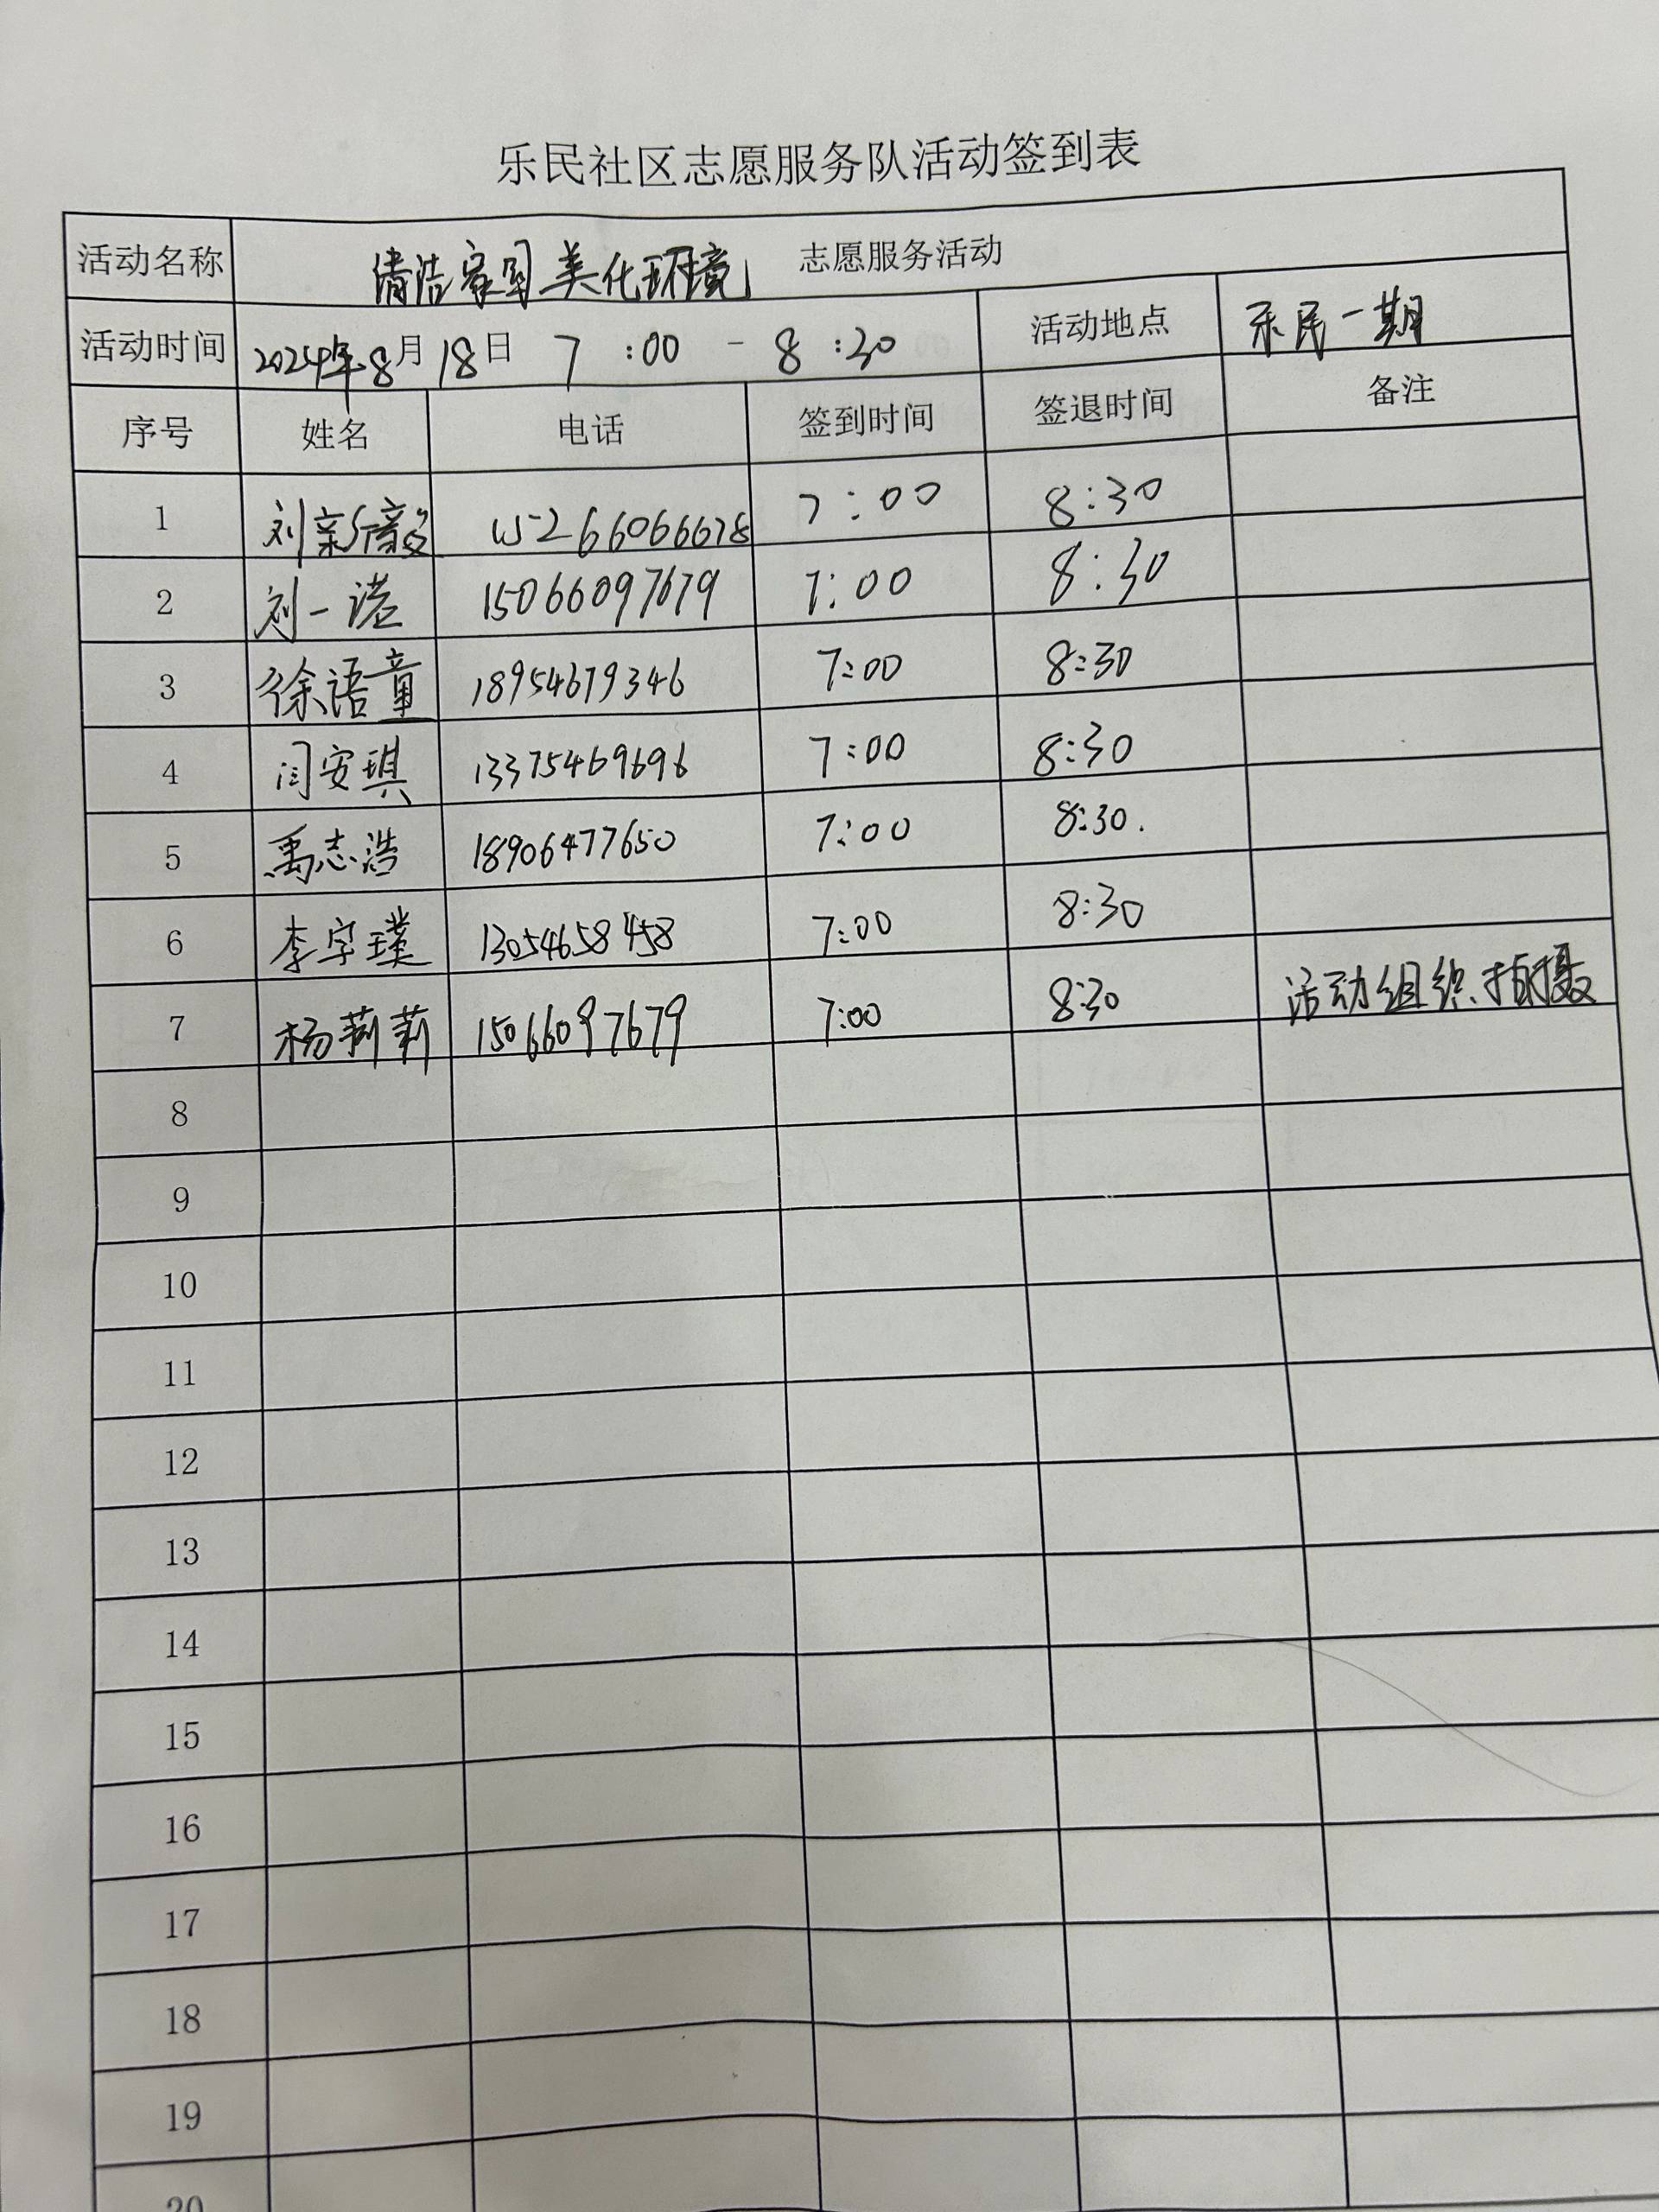 乐民社区志愿服务队活动签到表
活动名称 清洁家园美化环境 志愿服务活动
活动时间 2024年8月18日 7:00-8:30 活动地点 乐民一期
序号 姓名 电话 签到时间 签退时间 备注
1 刘 7:00 8:30
2 刘一诺 15066097679 7:00 8:30
3 徐语童 18954679346 7:00 8:30
4 闫安琪 13375469696 7:00 8:30
5 禹志浩 18906477650 7:00 8:30.
6 李宇璞 13054658458 7:00 8:30
7 杨莉莉 15066097679 7:00 8:30 活动组织、拍摄
8
9
10
11
12
13
14
15
16
17
18
19
20